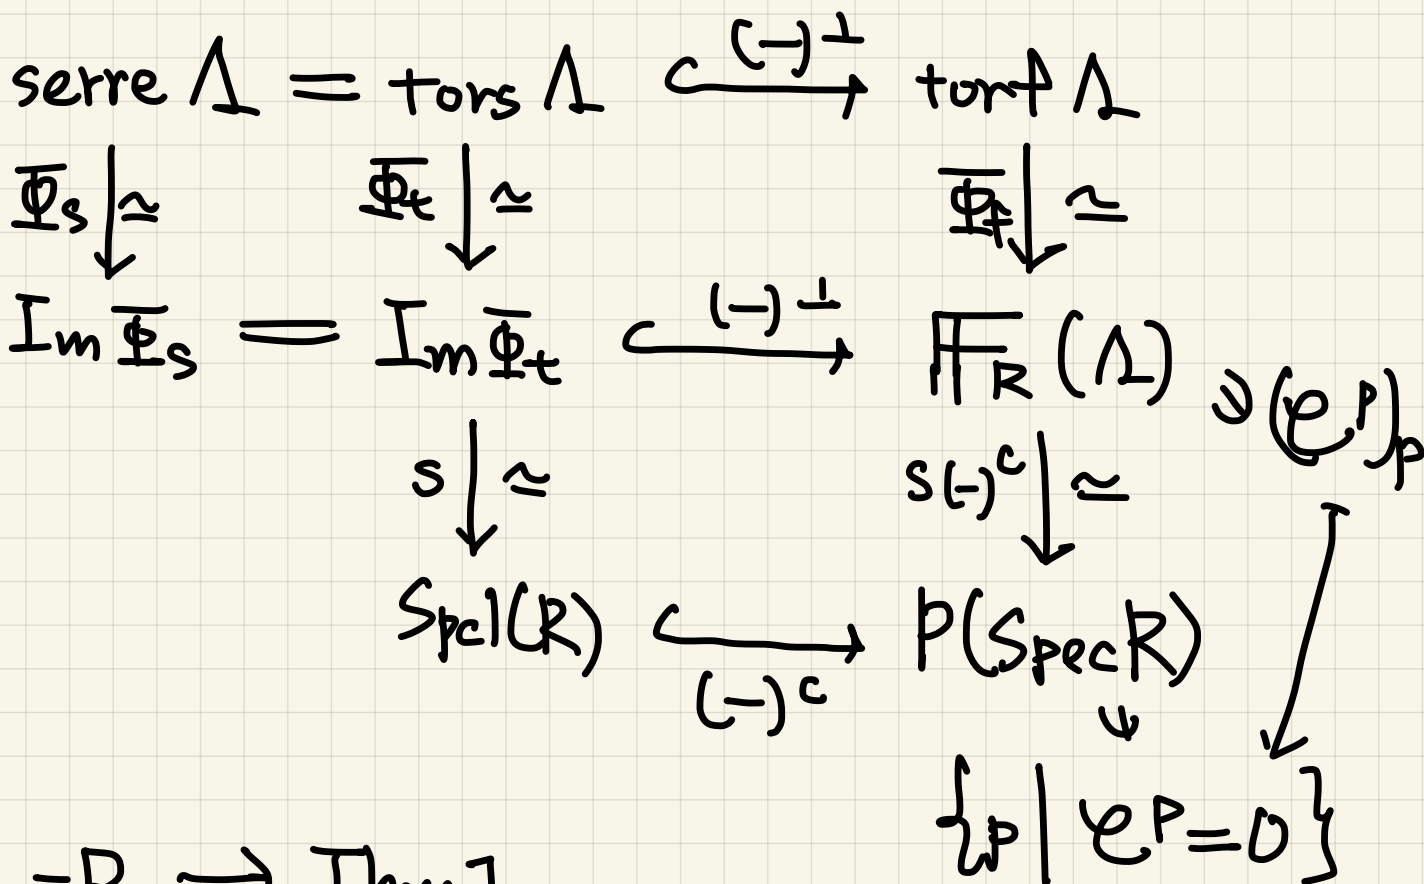 serre Λ = tors Λ (−)^⊥ torf Λ
Φ_s ↓ ≃ Φ_t ↓ ≃ Φ_f ↓ ≃
Im Φ_s = Im Φ_t (−)^⊥ 𝔽_R(Λ) ∋ (𝒞^p)_p
s ↓ ≃ s(−)^c ↓ ≃
Spcl(R) (−)^c P(Spec R)
{p | 𝒞^p = 0}